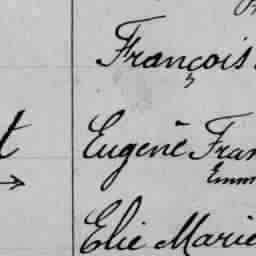 François
t Eugène Fran
Emm
Elie Marie